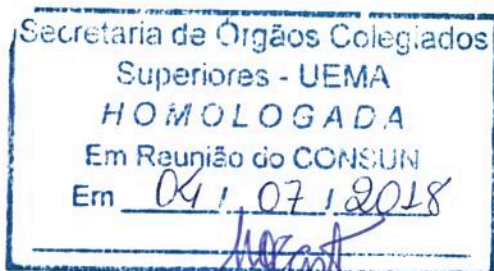 Secretaria de Órgãos Colegiados
Superiores - UEMA
HOMOLOGADA
Em Reunião do CONSUN
Em 04 / 07 / 2018